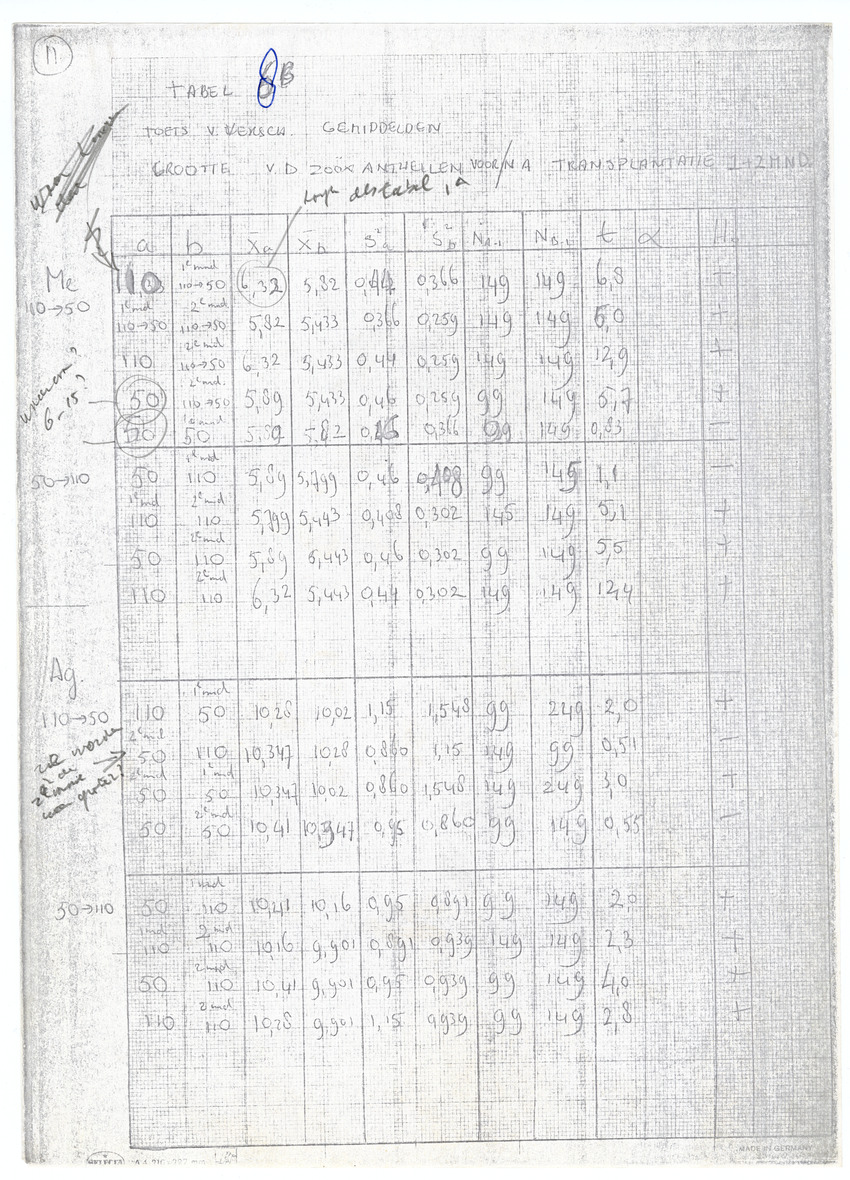 11
TABEL 8B
TOETS V. VERSCH. GEMIDDELDEN
GROOTTE V.D ZOÖXANTHELLEN VOOR/NA TRANSPLANTATIE 1+2 MND
als tabel 1a
a b X̄a X̄b S²a S²b Na-1 Nb-1 t α H₀
Me
1e mnd
110 110→50 6,32 5,82 0,44 0,366 149 149 6,8 +
110→50
1e mnd 2e mnd
110→50 110→50 5,82 5,433 0,366 0,259 149 149 6,0 +
2e mnd
110 110→50 6,32 5,433 0,44 0,259 149 149 12,9 +
2e mnd
50 110→50 5,89 5,433 0,46 0,259 99 149 5,7 +
1e mnd
50 5,89 5,82 0,366 99 149 0,83 −
6-15?
50→110
1e mnd
50 110 5,89 5,799 0,46 0,408 99 145 1,1 −
1e mnd 2e mnd
110 110 5,799 5,443 0,408 0,302 145 149 5,1 +
2e mnd
50 110 5,89 5,443 0,46 0,302 99 149 5,5 +
2e mnd
110 110 6,32 5,443 0,44 0,302 149 149 12,4 +
Ag.
110→50
1e mnd
110 50 10,28 10,02 1,15 1,548 99 249 2,0 +
2e mnd
50 110 10,347 1028 0,860 1,15 149 99 0,51 −
2e mnd 1e mnd
50 50 10,347 10,02 0,860 1,548 149 249 3,0 +
2e mnd
50 50 10,41 10,347 0,95 0,860 99 149 0,55 −
50→110
1 mnd
50 110 10,41 10,16 0,95 0,891 99 149 2,0 +
1 mnd 2 mnd
110 110 10,16 9,901 0,891 0,939 149 149 2,3 +
2 mnd
50 110 10,41 9,901 0,95 0,939 99 149 4,0 +
2 mnd
110 110 10,28 9,901 1,15 0,939 99 149 2,8 +
MADE IN GERMANY